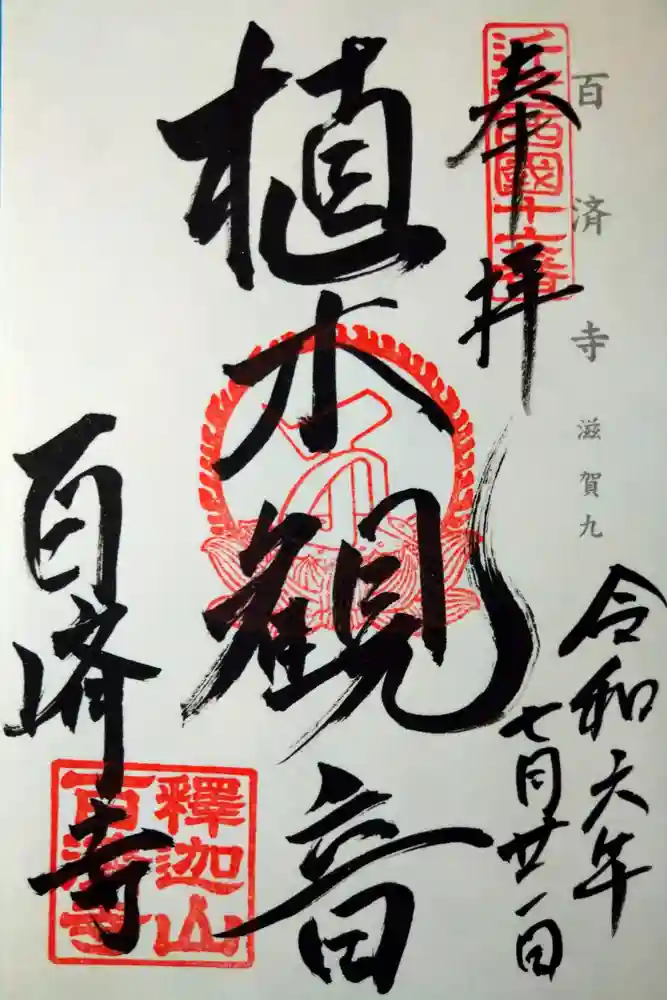 百済寺 滋賀九
奉拝
近江西國十六番
令和六年
七月廿一日
植木観音
百済寺
釋迦山
百濟寺